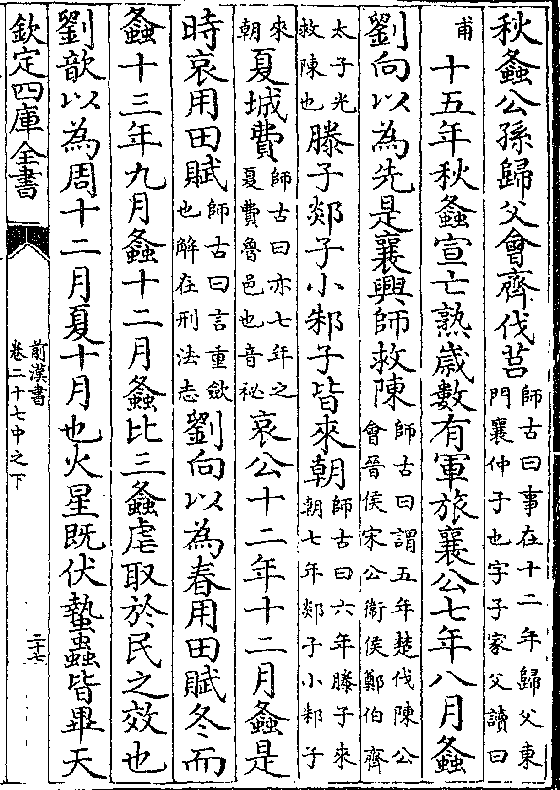 秋螽公孫歸父會齊伐莒師古曰事在十二年歸父東門襄仲子也字子家父讀曰
甫十五年秋螽宣亡熟歲數有軍旅襄公七年八月螽
劉向以為先是襄興師救陳師古曰謂五年楚伐陳公會晉侯宋公衛侯鄭伯齊
太子光救陳也滕子郯子小邾子皆來朝師古曰六年滕子來朝七年郯子小邾子
來朝夏城費師古曰亦七年之夏費魯邑也音祕哀公十二年十二月螽是
時哀用田賦師古曰言重斂也解在刑法志劉向以為春用田賦冬而
螽十三年九月螽十二月螽比三螽虐取於民之效也
劉歆以為周十二月夏十月也火星既伏蟄蟲皆畢天
欽定四庫全書
前漢書
卷二十七中之下
二十七